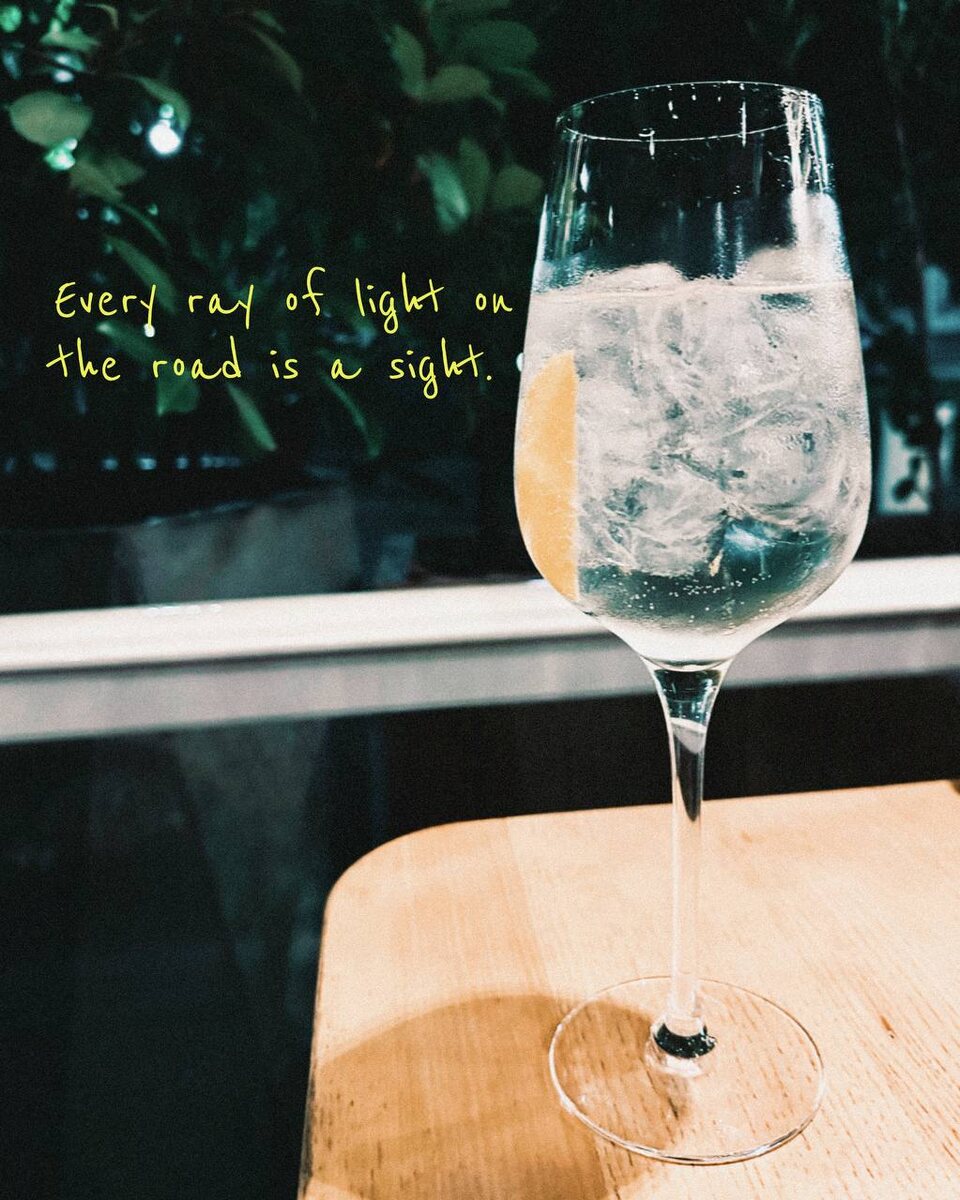 Every ray of light on
the road is a sight.